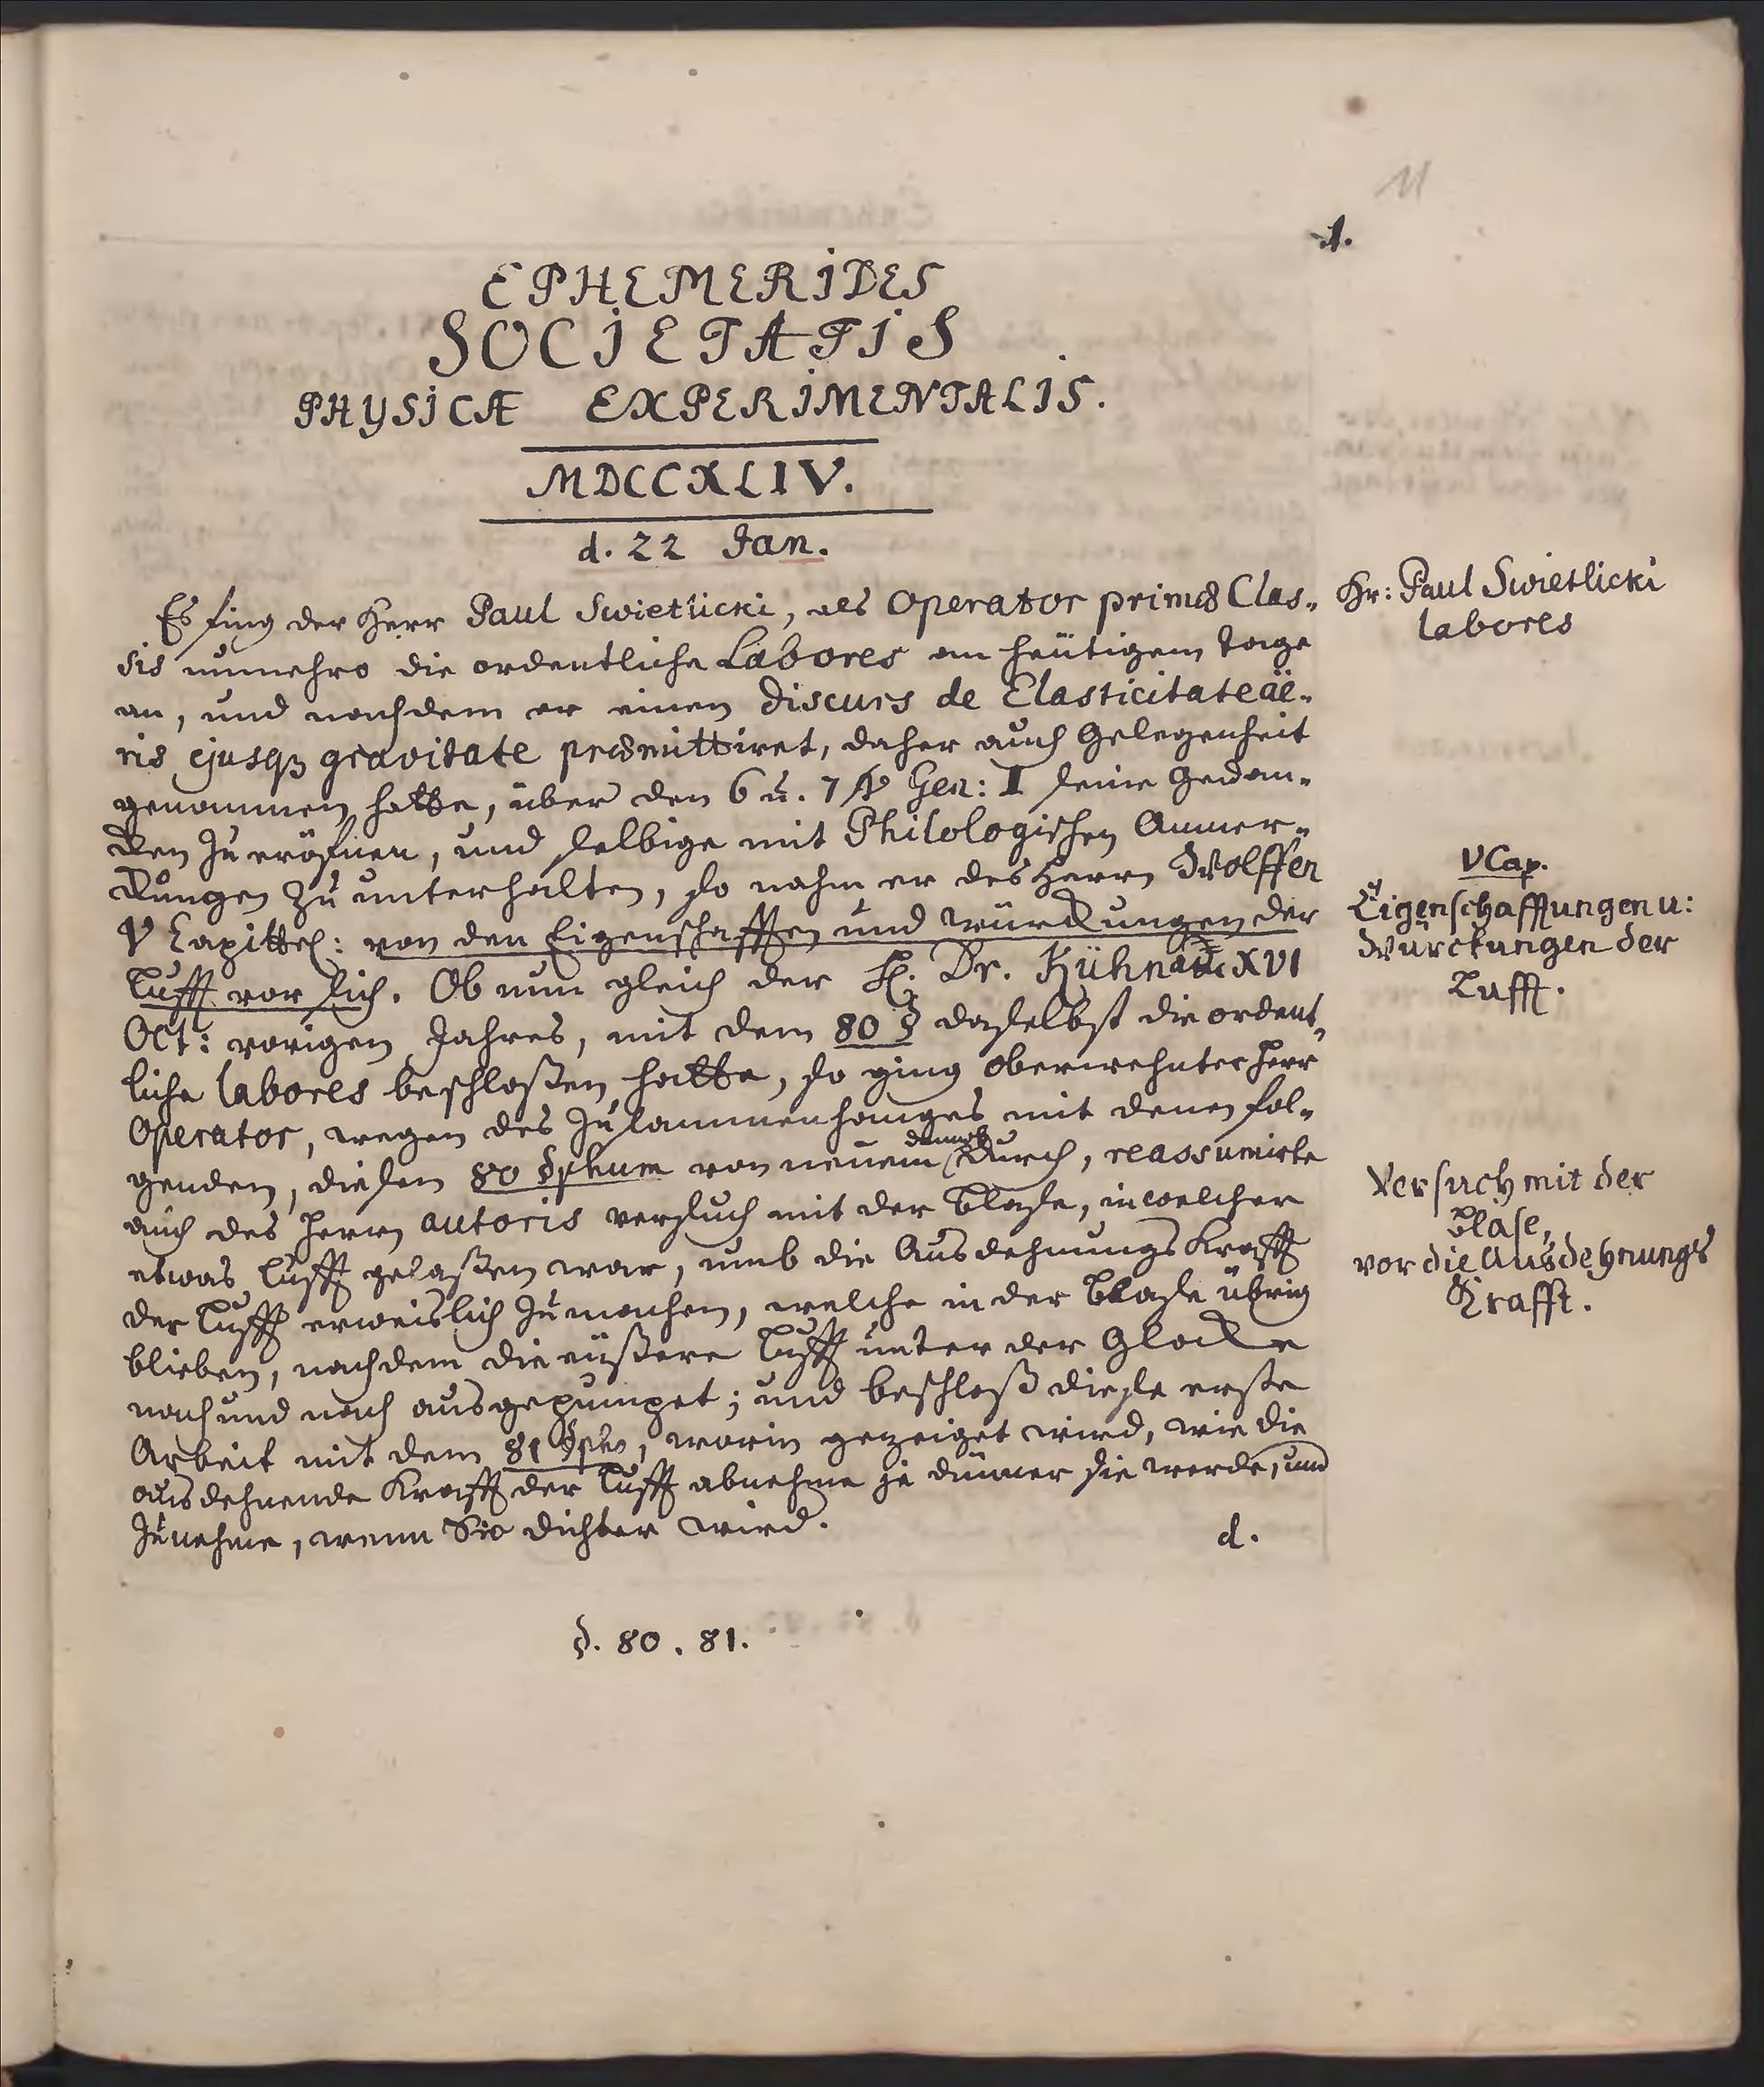 11
1.
EPHEMERIDES
SOCIETATIS
PHYSICÆ EXPERIMENTALIS.
MDCCXLIV.
d. 22 Jan.
Es fing der Herr Paul Swietlicki, als Operator primæ Clas-
sis nunmehro die ordentliche Labores an heütigem tage
an, und nachdem er einen Discurs de Elasticitate aë-
ris ejusqz gravitate præmittiret, daher auch Gelegenheit
genommen hatte, über den 6 u. 7 ℣ Gen: II seine Gedan-
cken zu eröfnen, und selbige mit Philologischen Anmer-
ckungen zu unterhalten, so nahm er des Herrn Wolffen
V Capittel: von den Eigenschafften und würckungen der
Lufft vor sich. Ob nun gleich der H. Dr. Kühn XVI
Oct: vorigen Jahres, mit dem 80 § daselbst die ordent-
liche labores beschloßen hatte, so ging oberwehnter Herr
Operator, wegen des Zusammenhanges mit denen fol-
genden, diesen 80 §phum von neuem dennoch durch, reassumirte
auch des Herrn autoris versuch mit der Blase, in welcher
etwas Lufft gelaßen war, umb die Ausdehnungs Krafft
der Lufft erweislich zu machen, welche in der Blase übrig
blieben, nachdem die eüßere Lufft unter der Glocke
nach und nach ausgepumpet; und beschloß diese erste
Arbeit mit dem 81 §pho, worin gezeiget wird, wie die
ausdehnende Krafft der Lufft abnehme je dünner sie werde, und
zunehme, wenn Sie dichter wird.
d.
§. 80. 81.
Hr: Paul Swietlicki
labores
V Cap.
Eigenschaffungen u:
Würckungen der
Lufft.
Versuch mit der
Blase,
vor die Ausdehnungs
Krafft.